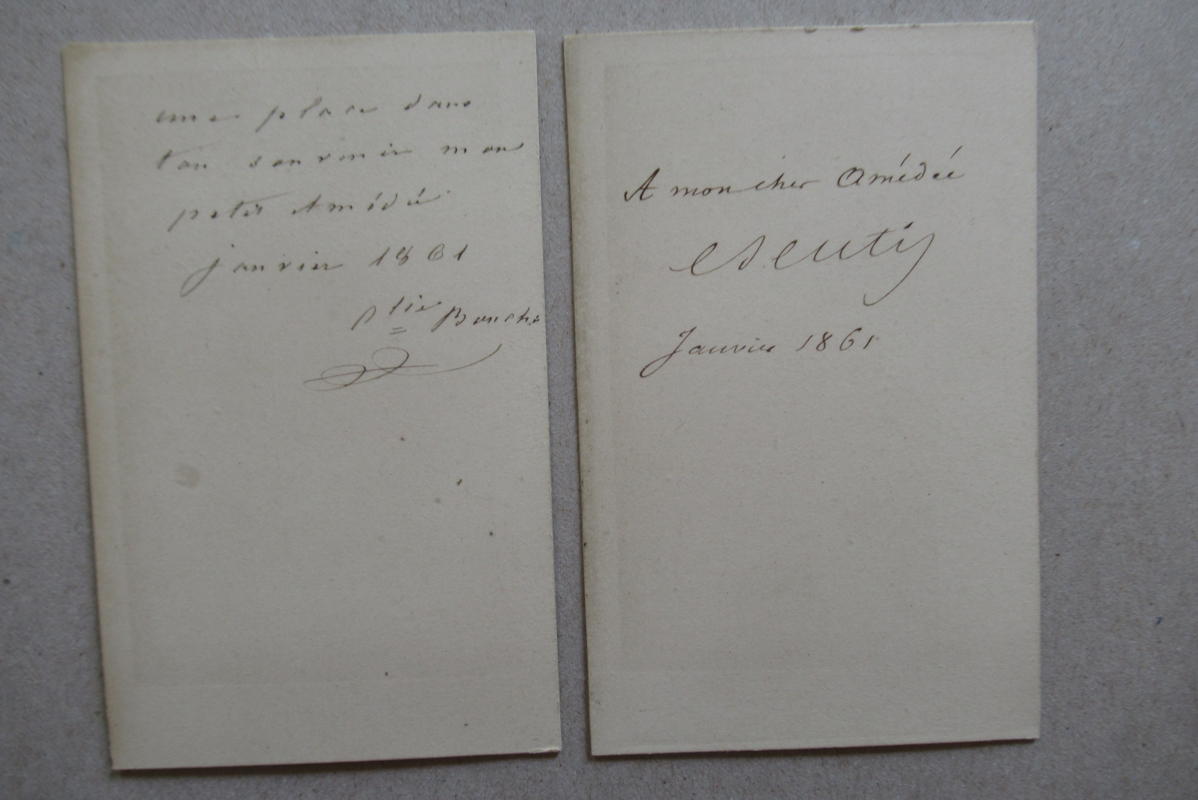 une place dans
ton souvenir mon
petit Amédé
janvier 1861
A mon cher Amédée
Janvier 1861